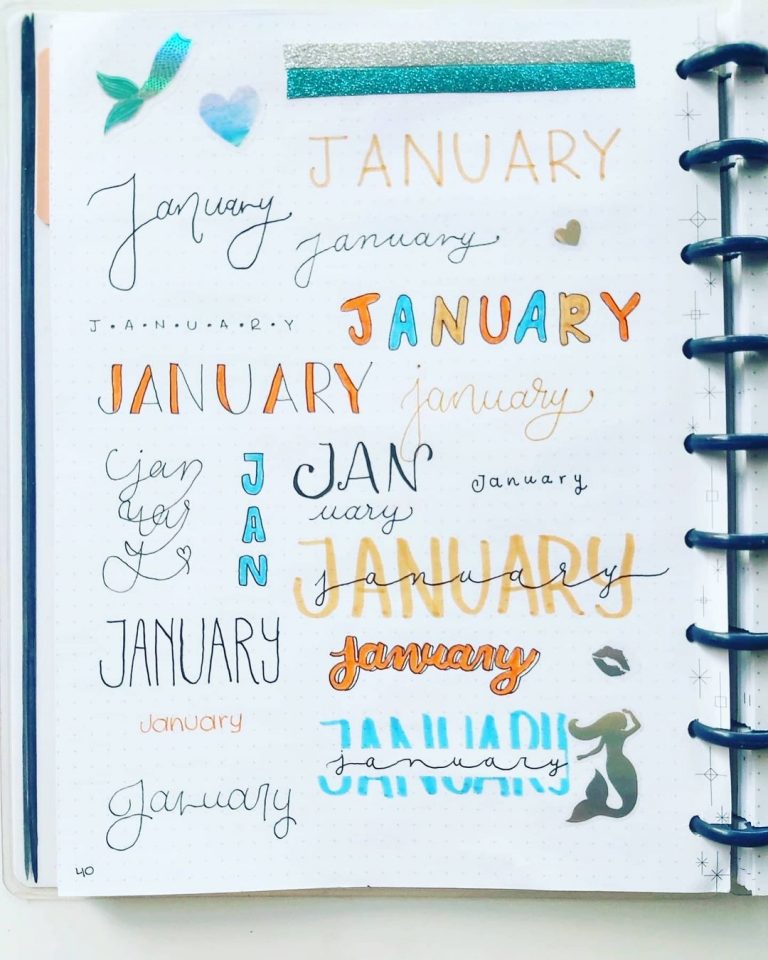 JANUARY
January
january
J•A•N•U•A•R•Y
JANUARY
JANUARY
january
jan
uar
y
JAN
JAN
uary
January
JANUARY
january
JANUARY
january
January
JANUARY
january
January
40